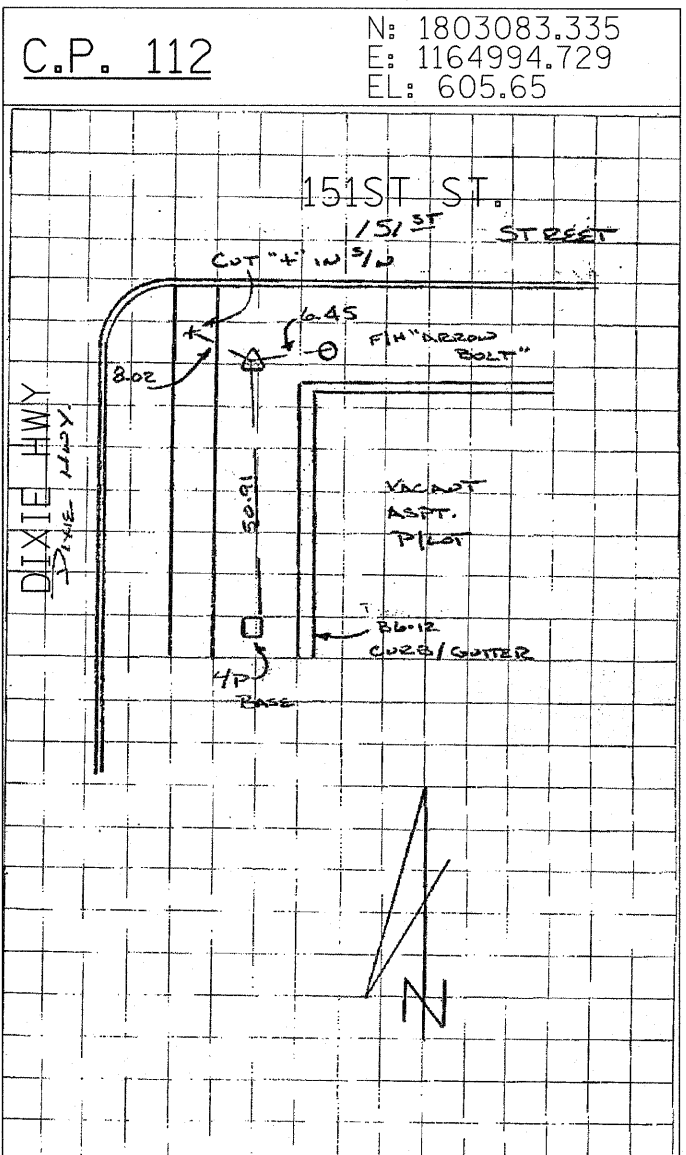 C.P. 112
N: 1803083.335
E: 1164994.729
EL: 605.65
151ST ST.
151ST STREET
CUT "+" IN S/W
6.45
F/H "ARROW
BOLT"
8.02
DIXIE HWY
DIXIE HWY.
50.91
VACANT
ASPT.
P/LOT
B6-12
CURB/GUTTER
L/P
BASE
N